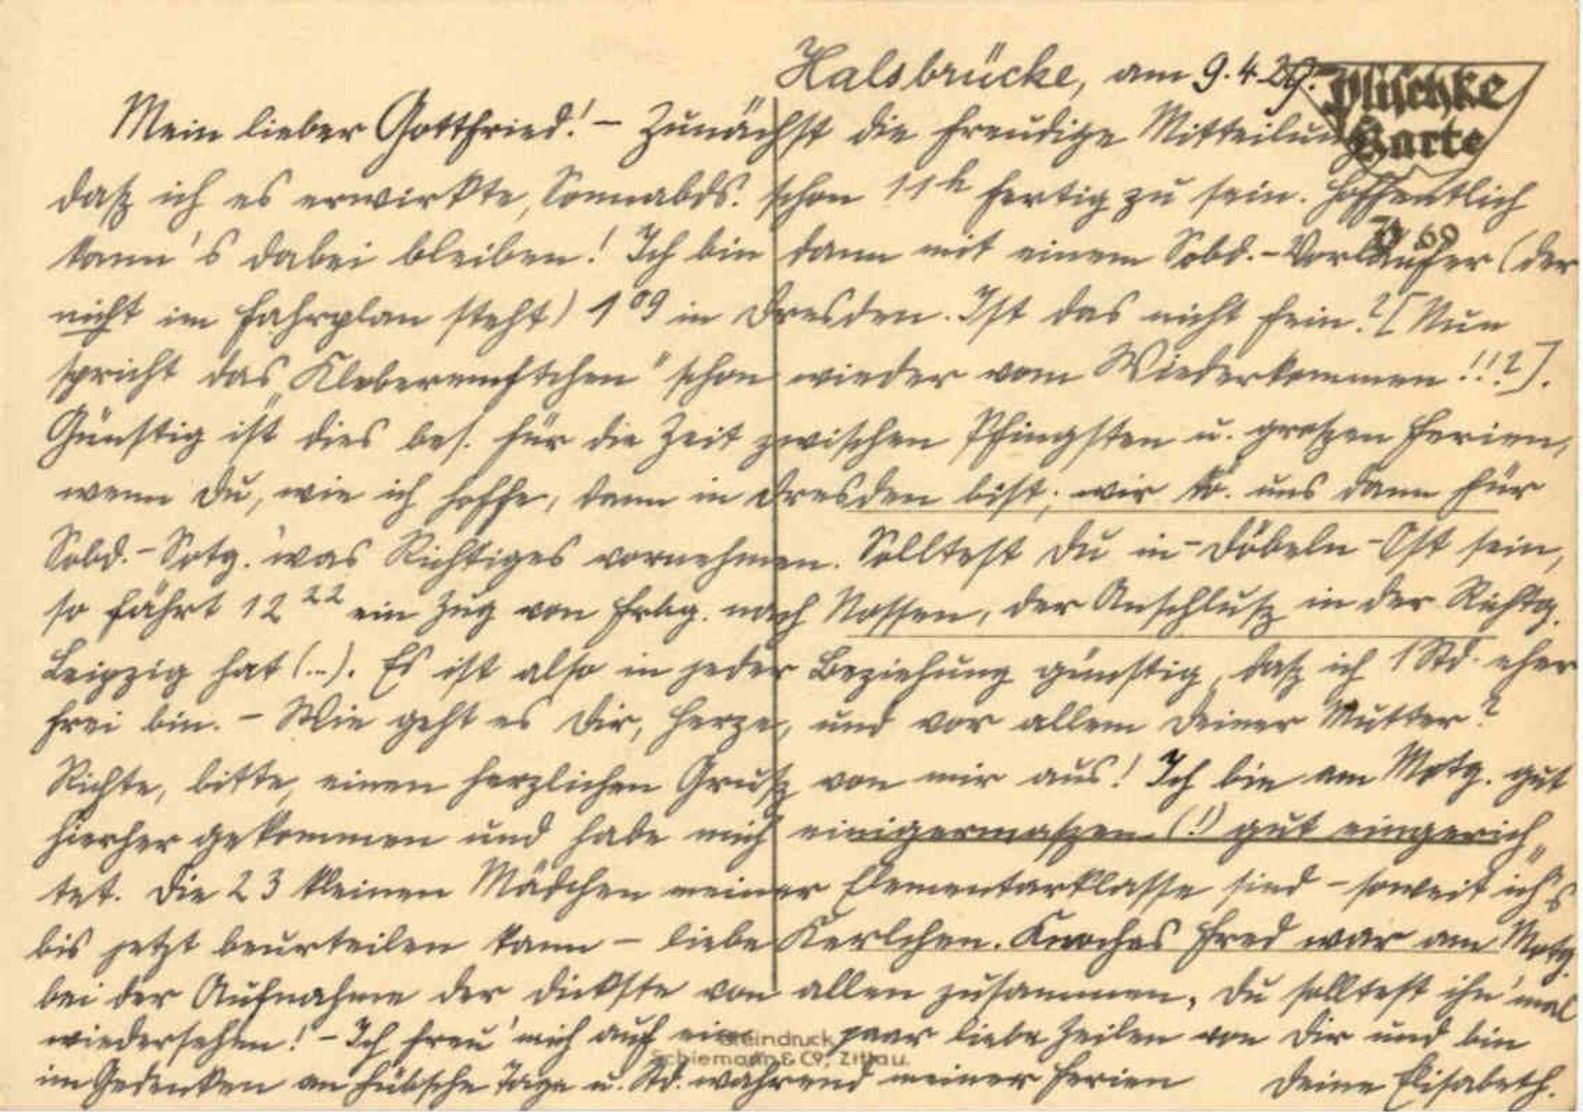 Halsbrücke, am 9.4.29.
Plischke
Karte
Mein lieber Gottfried! – Zunächst die freudige Mitteilung
daß ich es erwirkte, Sonnabds. schon 11h fertig zu sein. Hoffentlich
P 69
kann's dabei bleiben! Ich bin dann mit einem Sobd.-Vorläufer (der
nicht im Fahrplan steht) 1 09 in Dresden. Ist das nicht fein? [Nun
spricht das „ schon wieder vom Wiederkommen!!!?].
Günstig ist dies bes. für die Zeit zwischen Pfingsten u. großen Ferien,
wenn Du, wie ich hoffe, dann in Dresden bist; wir kö. uns dann für
Sobd.-Sotg. 'was Richtiges vornehmen. Solltest Du in Döbeln-Ost sein,
so fährt 12 22 ein Zug von Frbg. nach Nossen, der Anschluß in der Richtg.
Leipzig hat (...). Es ist also in jeder Beziehung günstig, daß ich 1 Std. eher
frei bin. – Wie geht es Dir, Herze, und vor allem Deiner Mutter?
Richte, bitte, einen herzlichen Gruß von mir aus! Ich bin am Motg. gut
hierher gekommen und habe mich einigermaßen (!) gut eingerich„
tet. Die 23 kleinen Mädchen meiner Elementarklasse sind – soweit ich's
bis jetzt beurteilen kann – liebe Kerlchen. Knoches Fred war am Motg.
bei der Aufnahme der dickste von allen zusammen, Du solltest ihn 'mal
wiedersehen! – Ich freu' mich auf ein paar liebe Zeilen von Dir und bin
Steindruck
Schiemann & Co, Zittau.
im Gedenken an hübsche Tage u. Std. während meiner Ferien Deine Elisabeth.